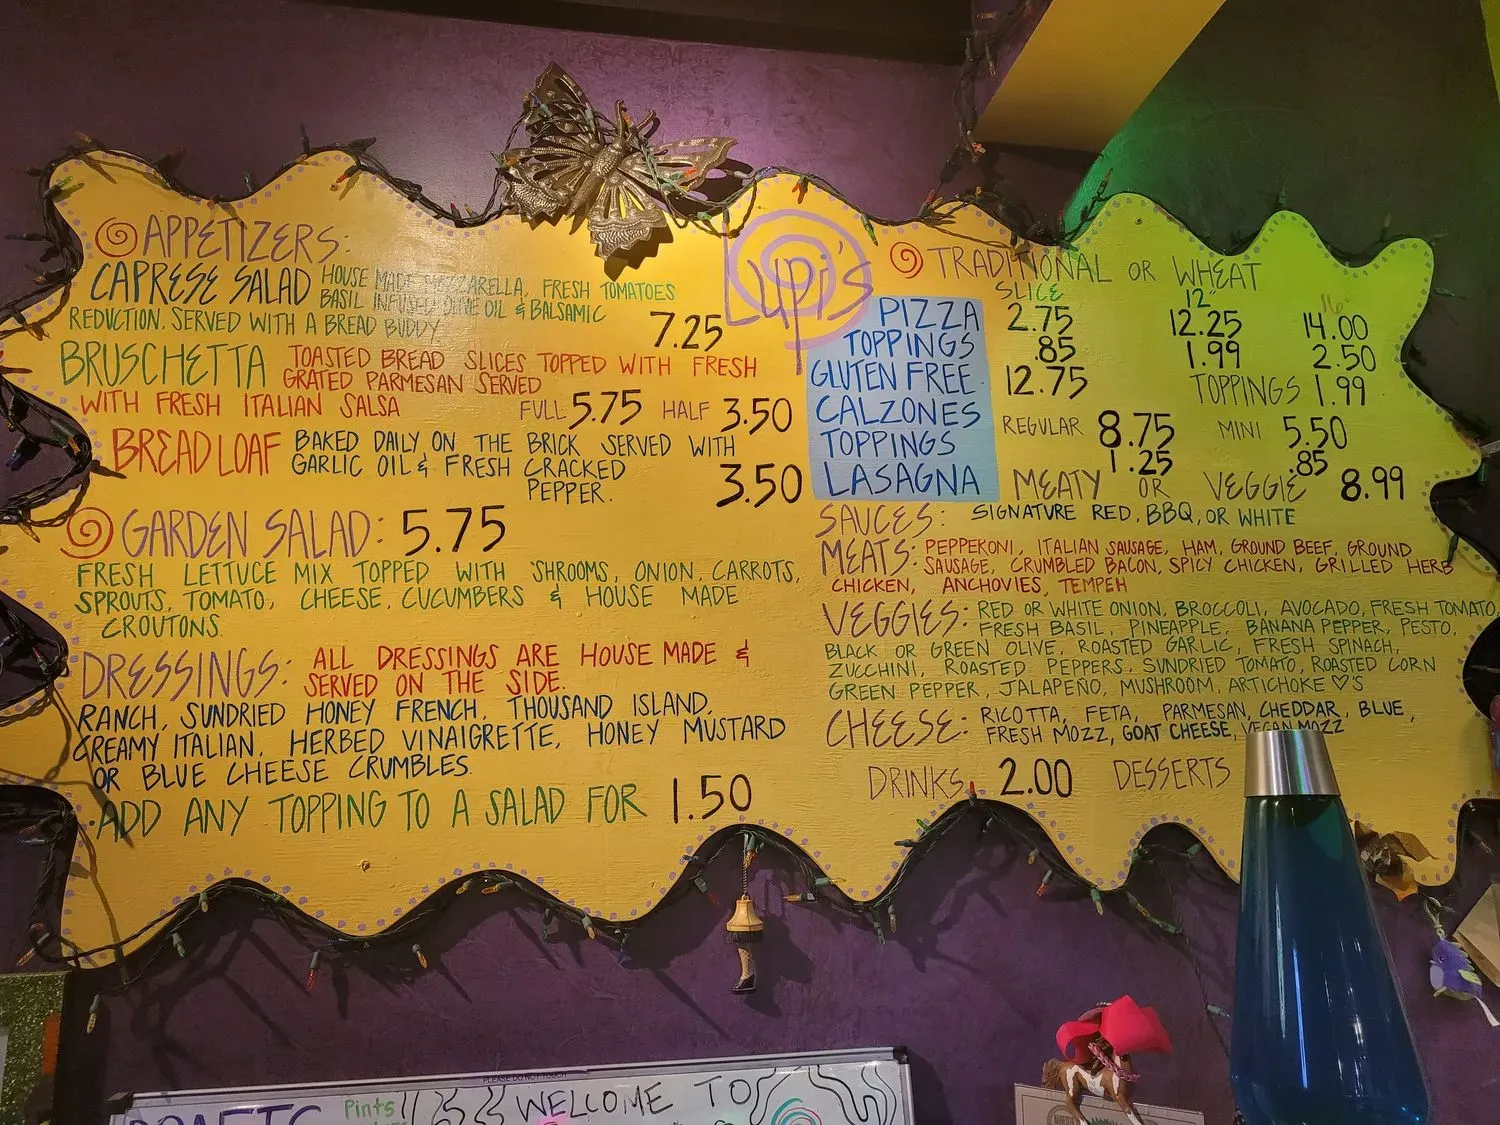 APPETIZERS:
CAPRESE SALAD HOUSE MADE MOZZARELLA, FRESH TOMATOES
BASIL INFUSED OLIVE OIL & BALSAMIC
REDUCTION. SERVED WITH A BREAD BUDDY
7.25
BRUSCHETTA TOASTED BREAD SLICES TOPPED WITH FRESH
GRATED PARMESAN SERVED
WITH FRESH ITALIAN SALSA FULL 5.75 HALF 3.50
BREAD LOAF BAKED DAILY ON THE BRICK SERVED WITH
GARLIC OIL & FRESH CRACKED
PEPPER. 3.50
GARDEN SALAD: 5.75
FRESH LETTUCE MIX TOPPED WITH 'SHROOMS, ONION, CARROTS,
SPROUTS, TOMATO, CHEESE, CUCUMBERS & HOUSE MADE
CROUTONS.
DRESSINGS: ALL DRESSINGS ARE HOUSE MADE &
SERVED ON THE SIDE.
RANCH, SUNDRIED HONEY FRENCH, THOUSAND ISLAND,
CREAMY ITALIAN, HERBED VINAIGRETTE, HONEY MUSTARD
OR BLUE CHEESE CRUMBLES.
ADD ANY TOPPING TO A SALAD FOR 1.50
Lupi's
TRADITIONAL OR WHEAT
SLICE 12" 16"
PIZZA 2.75 12.25 14.00
TOPPINGS .85 1.99 2.50
GLUTEN FREE 12.75 TOPPINGS 1.99
CALZONES REGULAR 8.75 MINI 5.50
TOPPINGS 1.25 .85
LASAGNA MEATY OR VEGGIE 8.99
SAUCES: SIGNATURE RED, BBQ, OR WHITE
MEATS: PEPPERONI, ITALIAN SAUSAGE, HAM, GROUND BEEF, GROUND
SAUSAGE, CRUMBLED BACON, SPICY CHICKEN, GRILLED HERB
CHICKEN, ANCHOVIES, TEMPEH
VEGGIES: RED OR WHITE ONION, BROCCOLI, AVOCADO, FRESH TOMATO,
FRESH BASIL, PINEAPPLE, BANANA PEPPER, PESTO,
BLACK OR GREEN OLIVE, ROASTED GARLIC, FRESH SPINACH,
ZUCCHINI, ROASTED PEPPERS, SUNDRIED TOMATO, ROASTED CORN
GREEN PEPPER, JALAPEÑO, MUSHROOM, ARTICHOKE ♡'S
CHEESE: RICOTTA, FETA, PARMESAN, CHEDDAR, BLUE,
FRESH MOZZ, GOAT CHEESE, VEGAN MOZZ
DRINKS 2.00 DESSERTS
PLEASE DO NOT TOUCH
DRAFTS Pints WELCOME TO